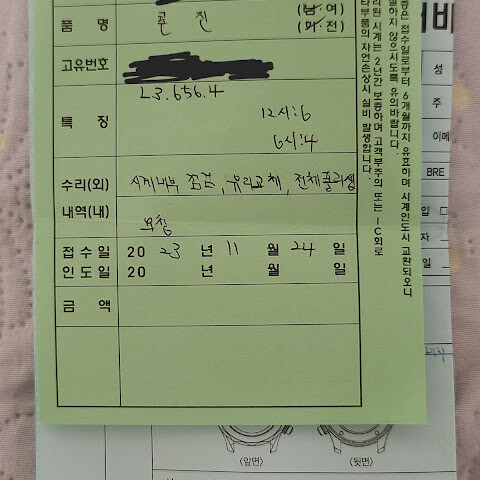 품 명 론진 (남 여)
(기 전)
고유번호
L3.656.4
특 징 12시:6
6시:4
수리(외) 시계내부 점검, 유리교체, 전체폴리싱
내역(내) 보침
접수일 2023 년 11 월 24 일
인도일 20 년 월 일
금 액
증은 접수일로부터 6개월까지 유효하며 시계인도시 교환되오니
않으시도록 유의바랍니다.
리된 시계는 2년간 보증하며 고객부주의 또는 IC회로
타부품의 자연손상시 실비 발생합니다.
성
주
이메
BRE
입
자
일
〈앞면〉 〈뒷면〉